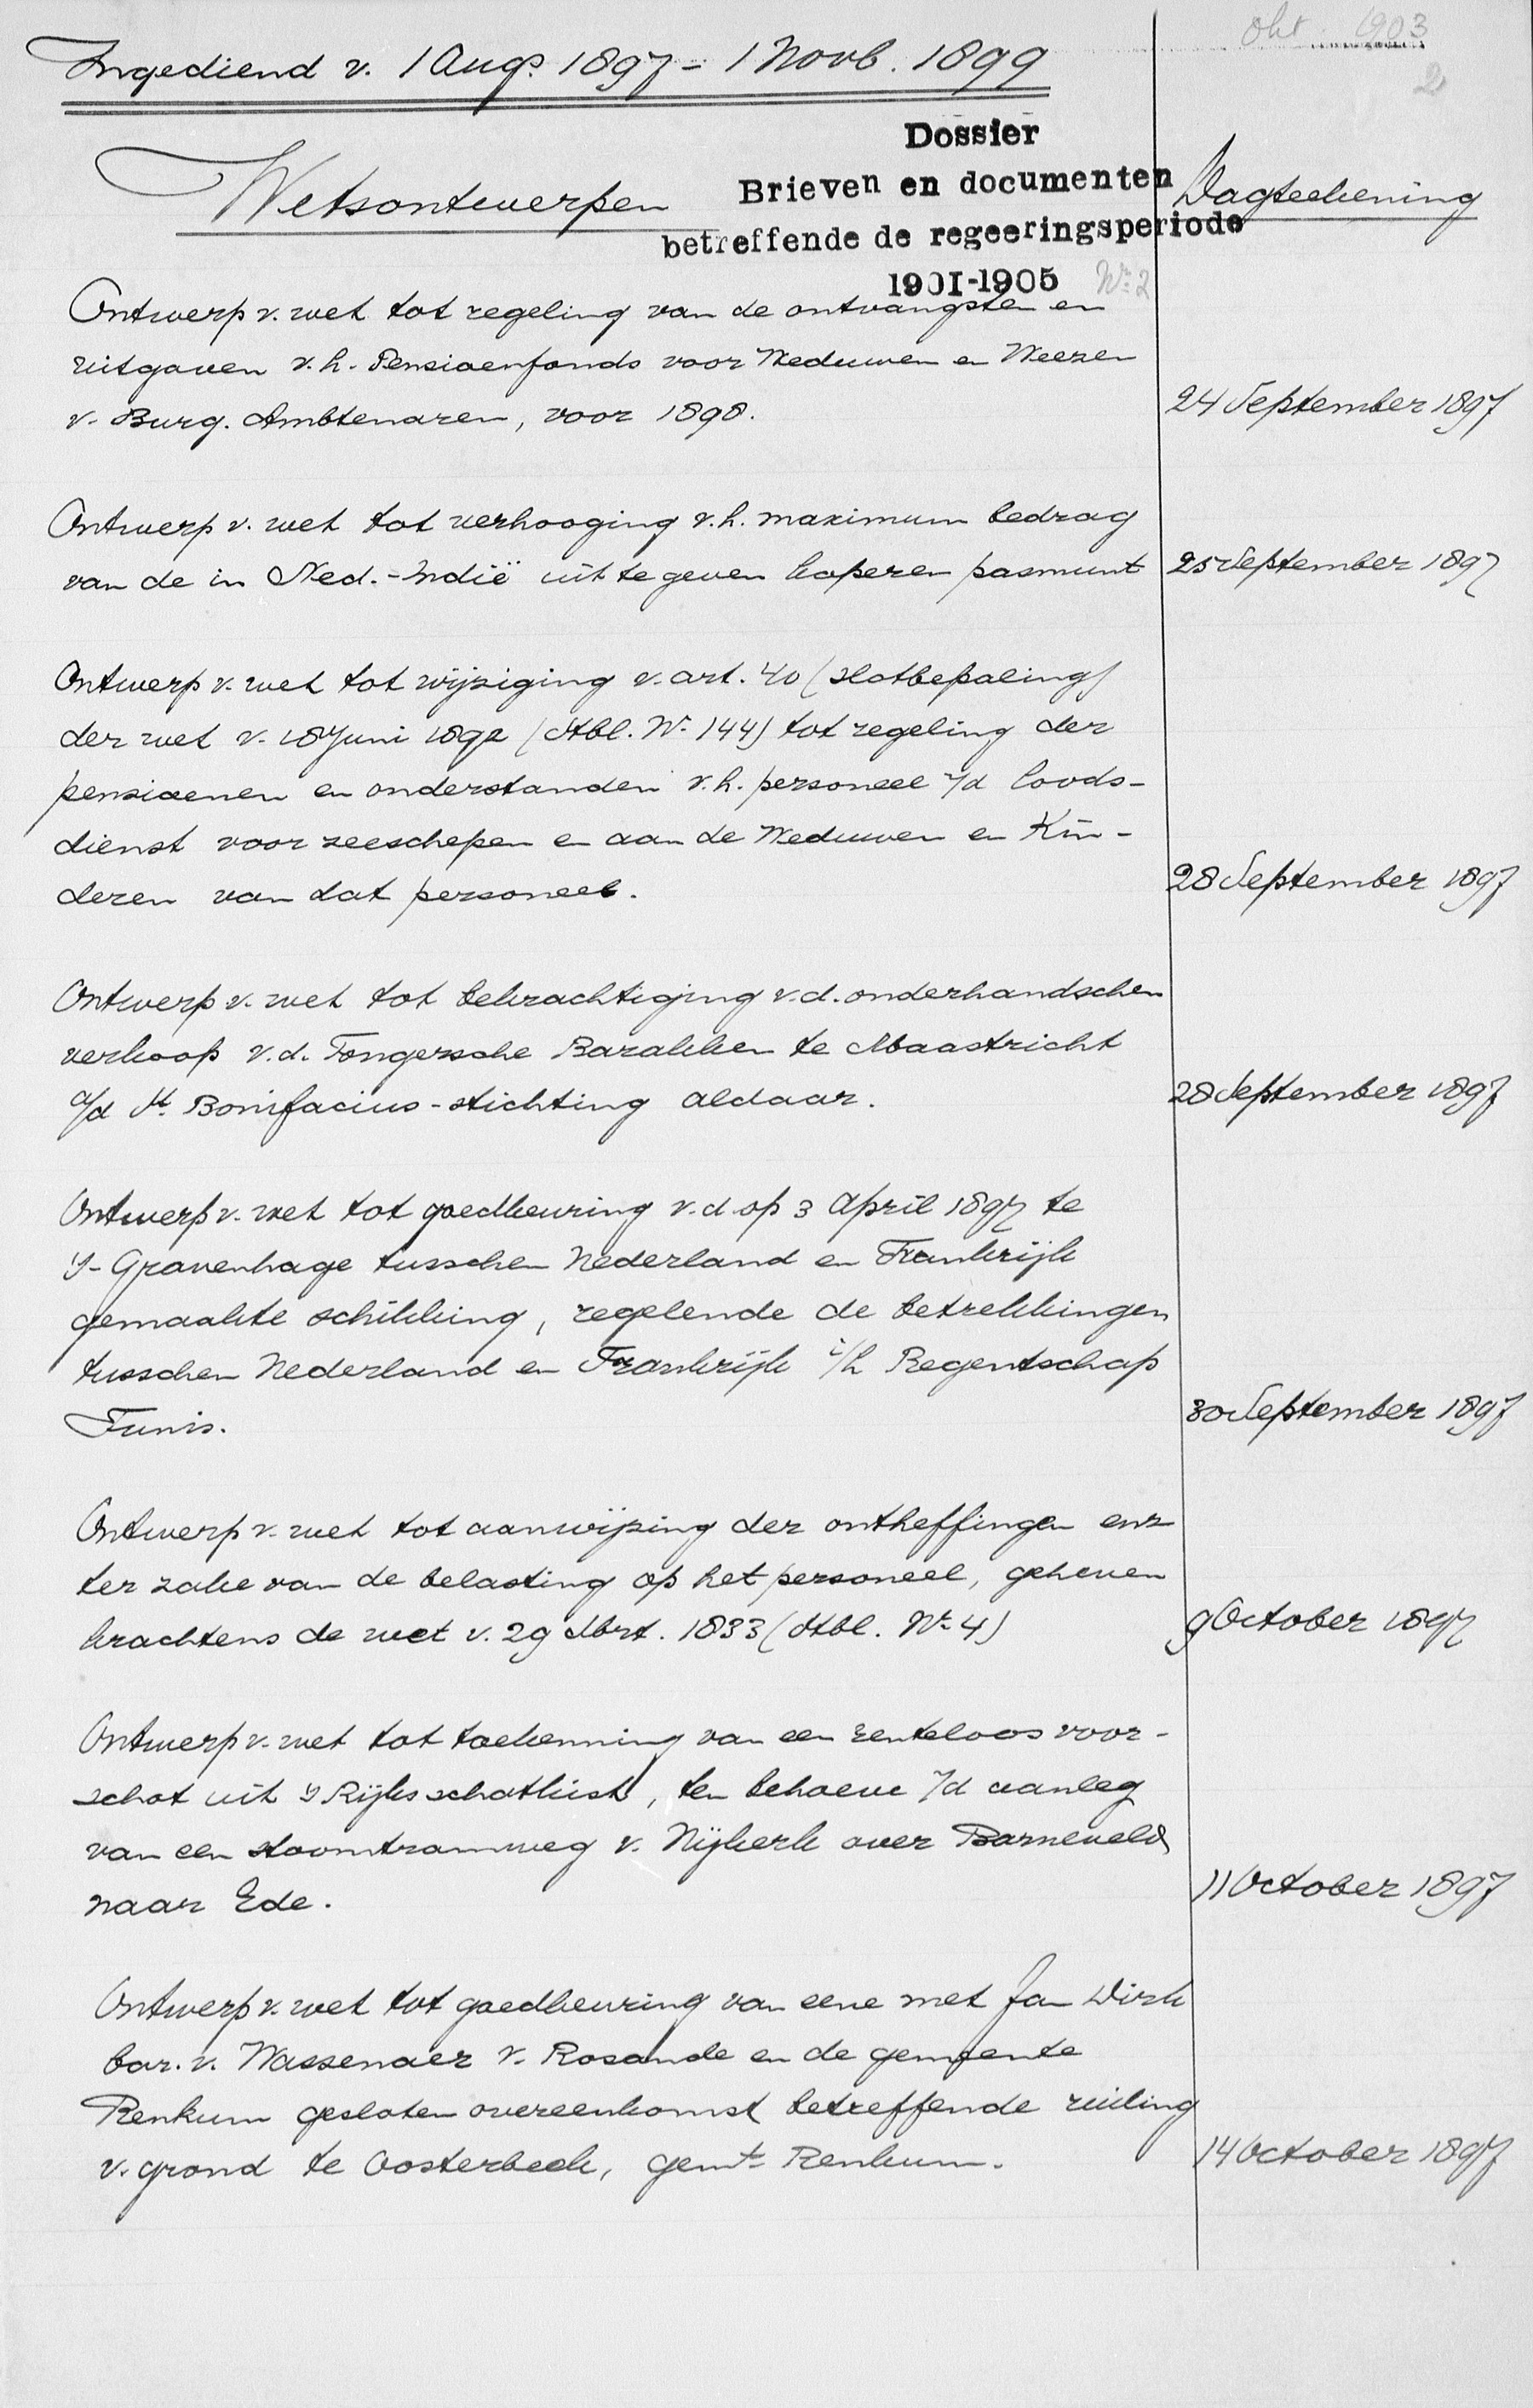 okt. 1903
2
Ingediend v. 1 Augs. 1897 - 1 Novb. 1899
Dossier
Brieven en documenten
betreffende de regeeringsperiode
1901-1905 No. 2
Wetsontwerpen
Dagteekening
Ontwerp v. wet tot regeling van de ontvangsten en
uitgaven v.h. Pensioenfonds voor Weduwen en Weezen
v. Burg. Ambtenaren, voor 1898.
24 September 1897
Ontwerp v. wet tot verhooging v.h. maximum bedrag
van de in Ned.-Indië uit te geven koperen pasmunt
25 September 1897
Ontwerp v. wet tot wijziging v. art. 40 (slotbepaling)
der wet v. 18 Juni 1892 (Stbl. No. 144) tot regeling der
pensioenen en onderstanden v.h. personeel v/d loods-
dienst voor zeeschepen en aan de Weduwen en Kin-
deren van dat personeel.
28 September 1897
Ontwerp v. wet tot bekrachtiging v.d. onderhandschen
verkoop v.d. Tongersche Barakken te Maastricht
a/d St. Bonifacius-stichting aldaar.
28 September 1897
Ontwerp v. wet tot goedkeuring v.d. op 3 April 1897 te
's-Gravenhage tusschen Nederland en Frankrijk
gemaakte schikking, regelende de betrekkingen
tusschen Nederland en Frankrijk i/h Regentschap
Tunis.
30 September 1897
Ontwerp v. wet tot aanwijzing der ontheffingen enz
ter zake van de belasting op het personeel, geheven
krachtens de wet v. 29 Mrt. 1833 (Stbl. No. 4)
9 October 1897
Ontwerp v. wet tot toekenning van een renteloos voor-
schot uit 's Rijksschatkist, ten behoeve v/d aanleg
van een stoomtramweg v. Nijkerk over Barneveld
naar Ede.
11 October 1897
Ontwerp v. wet tot goedkeuring van eene met Jan Dirk
bar. v. Wassenaer v. Rosande en de gemeente
Renkum gesloten overeenkomst betreffende ruiling
v. grond te Oosterbeek, gemte. Renkum.
14 October 1897